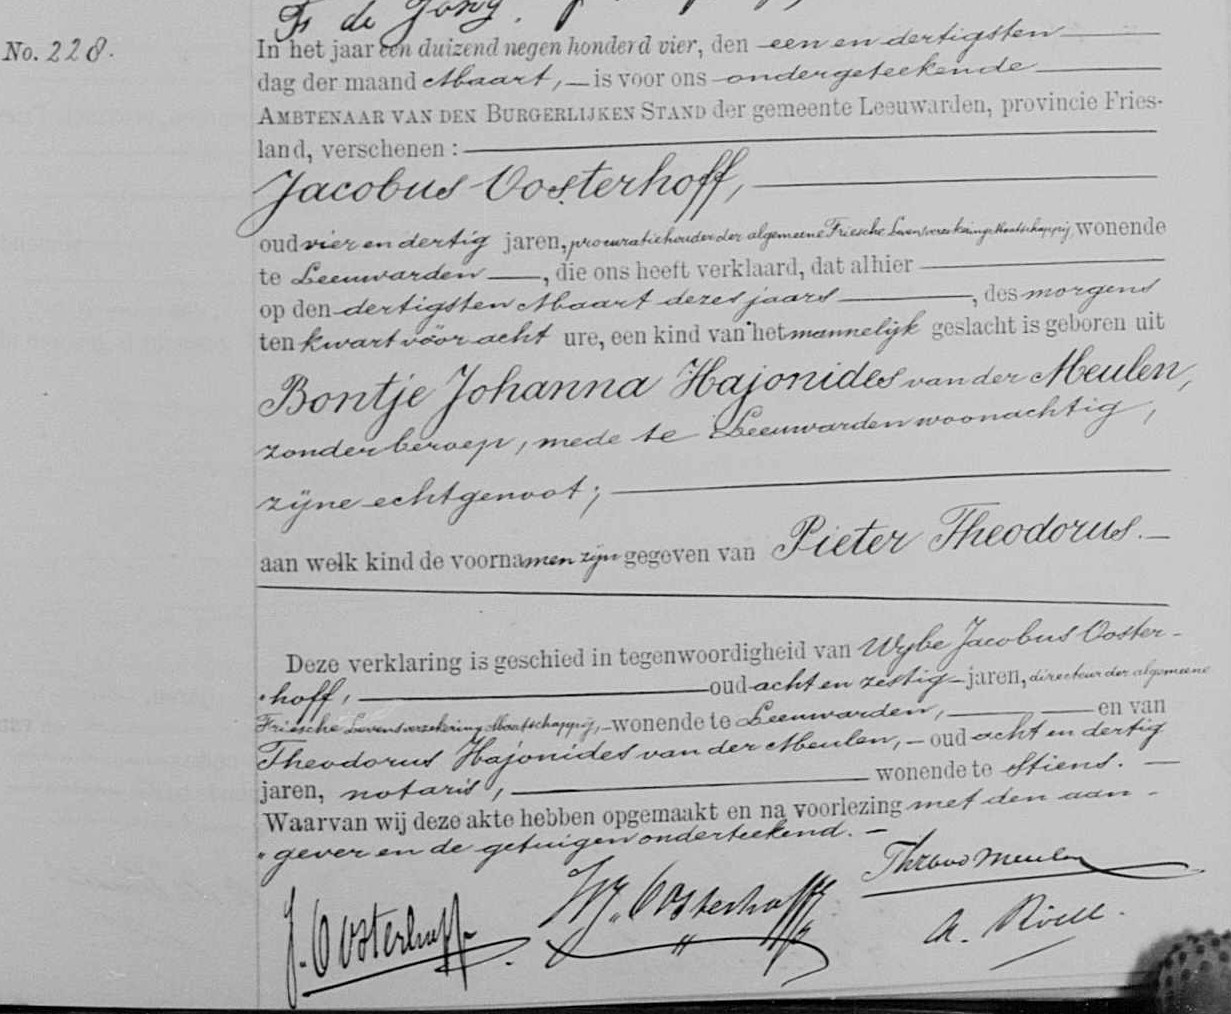 Fs de Jong.
No. 228.
In het jaar een duizend negen honderd vier, den een en dertigsten
dag der maand Maart, is voor ons ondergeteekende
AMBTENAAR VAN DEN BURGERLIJKEN STAND der gemeente Leeuwarden, provincie Fries-
land, verschenen :
Jacobus Oosterhoff,
oud vier en dertig jaren, procuratiehouder der algemeene Friesche Levensverzekerings Maatschappij, wonende
te Leeuwarden, die ons heeft verklaard, dat alhier
op den dertigsten Maart dezes jaars, des morgens
ten kwart vóór acht ure, een kind van het mannelijk geslacht is geboren uit
Bontje Johanna Hajonides van der Meulen,
zonder beroep, mede te Leeuwarden woonachtig,
zijne echtgenoot;
aan welk kind de voornamen zijn gegeven van Pieter Theodorus.
Deze verklaring is geschied in tegenwoordigheid van Wybe Jacobus Ooster-
hoff, oud acht en zestig jaren, directeur der algemeene
Friesche Levensverzekering Maatschappij, wonende te Leeuwarden, en van
Theodorus Hajonides van der Meulen, oud acht en dertig
jaren, notaris, wonende te Stiens.
Waarvan wij deze akte hebben opgemaakt en na voorlezing met den aan-
gever en de getuigen onderteekend.
J. Oosterhoff. W.J. Oosterhoff